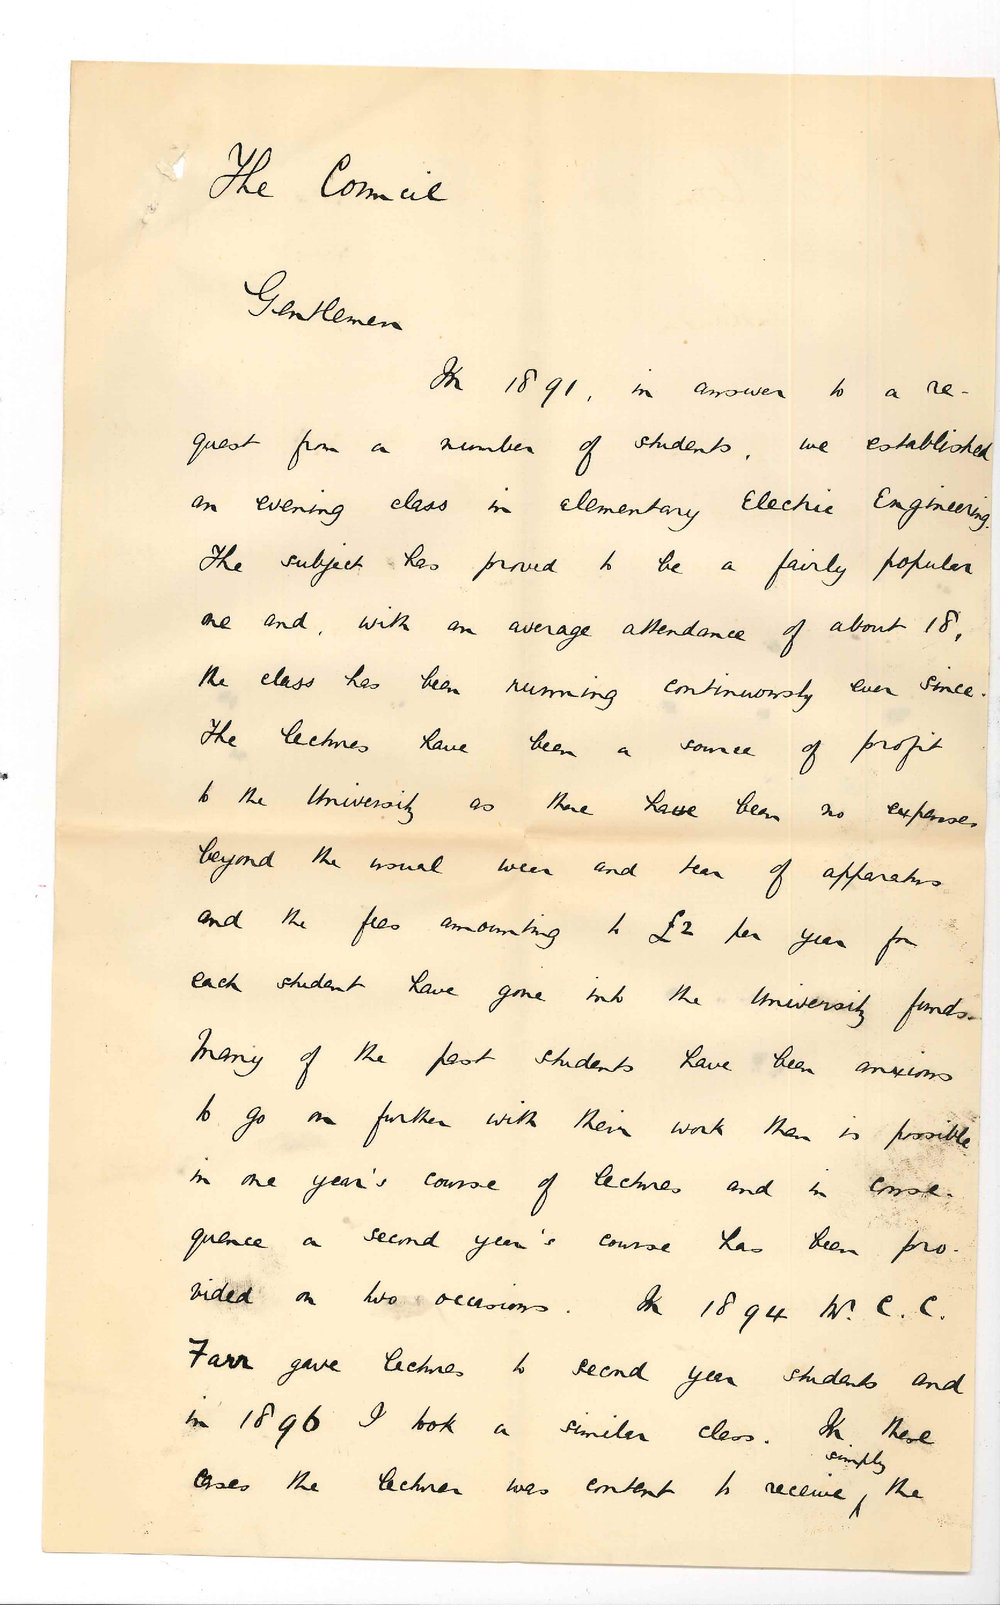 The Council
Gentlemen
In 1891, in answer to a re-
quest from a number of students, we established
an evening class in elementary Electric Engineering.
The subject has proved to be a fairly popular
one and, with an average attendance of about 18,
the class has been running continuously ever since.
The lectures have been a source of profit
to the University as there have been no expenses
beyond the usual wear and tear of apparatus
and the fees amounting to £2 per year for
each student have gone into the University funds.
Many of the past students have been anxious
to go on further with their work than is possible
in one year's course of lectures and in conse-
quence a second year's course has been pro-
vided on two occasions. In 1894 Mr. C. C.
Farr gave lectures to second year students and
in 1896 I took a similar class. In these
cases the lecturer was content to receive simply the